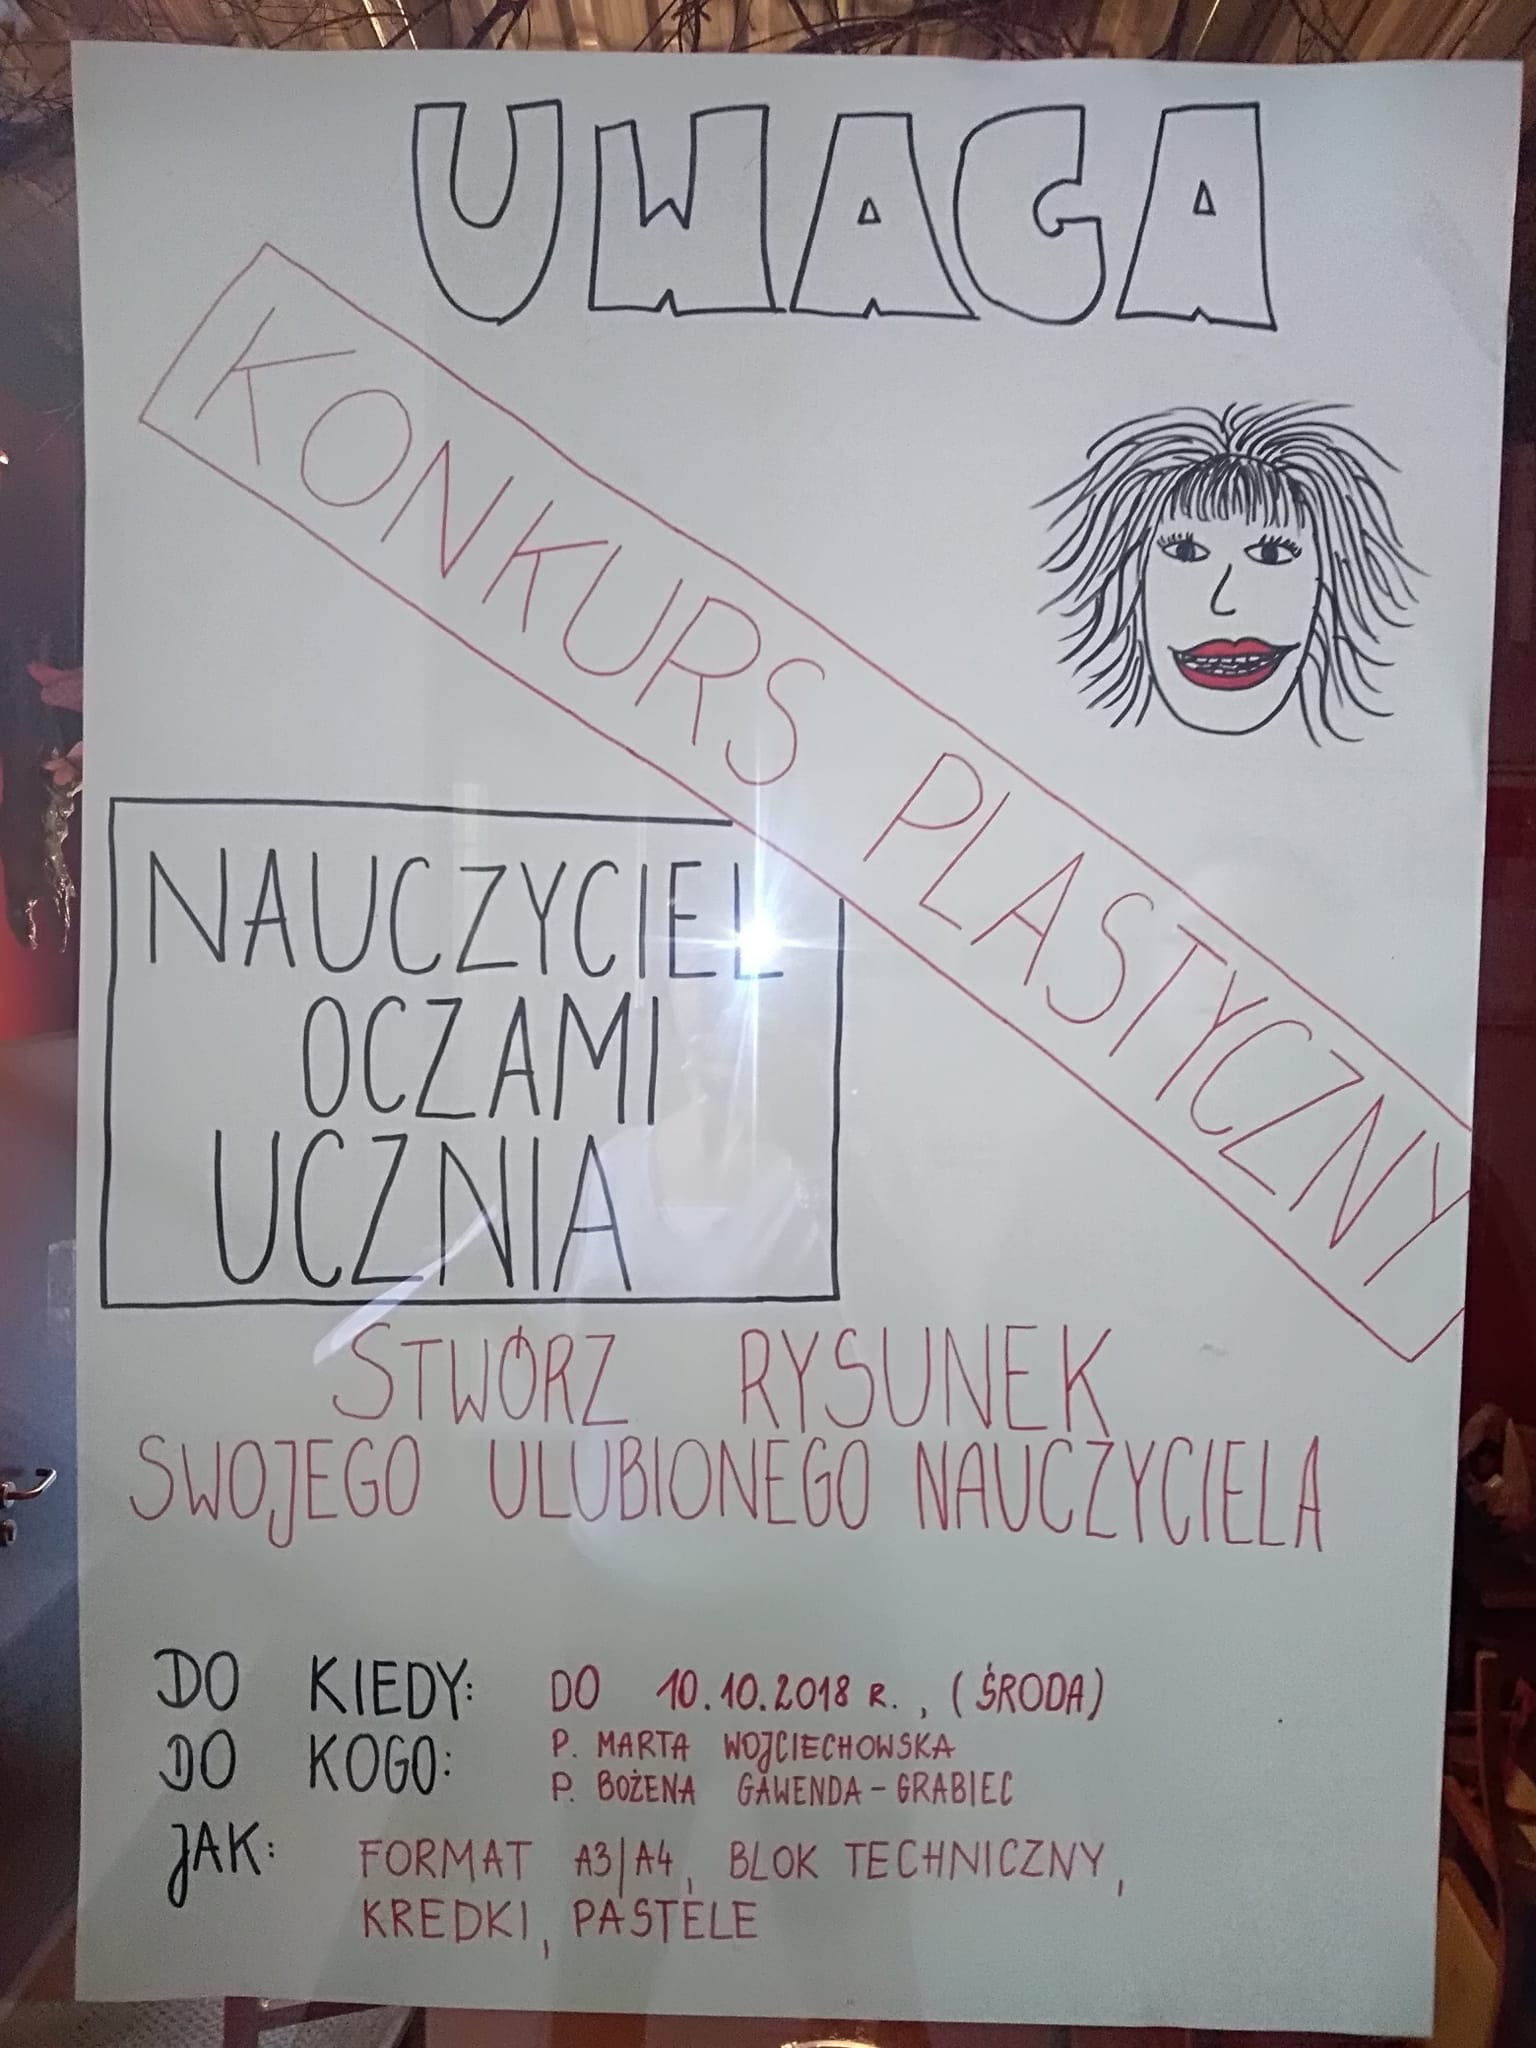 UWAGA
KONKURS PLASTYCZNY
NAUCZYCIEL
OCZAMI
UCZNIA
STWÓRZ RYSUNEK
SWOJEGO ULUBIONEGO NAUCZYCIELA
DO KIEDY: DO 10.10.2018 R., (ŚRODA)
DO KOGO: P. MARTA WOJCIECHOWSKA
P. BOŻENA GAWENDA-GRABIEC
JAK: FORMAT A3/A4, BLOK TECHNICZNY,
KREDKI, PASTELE